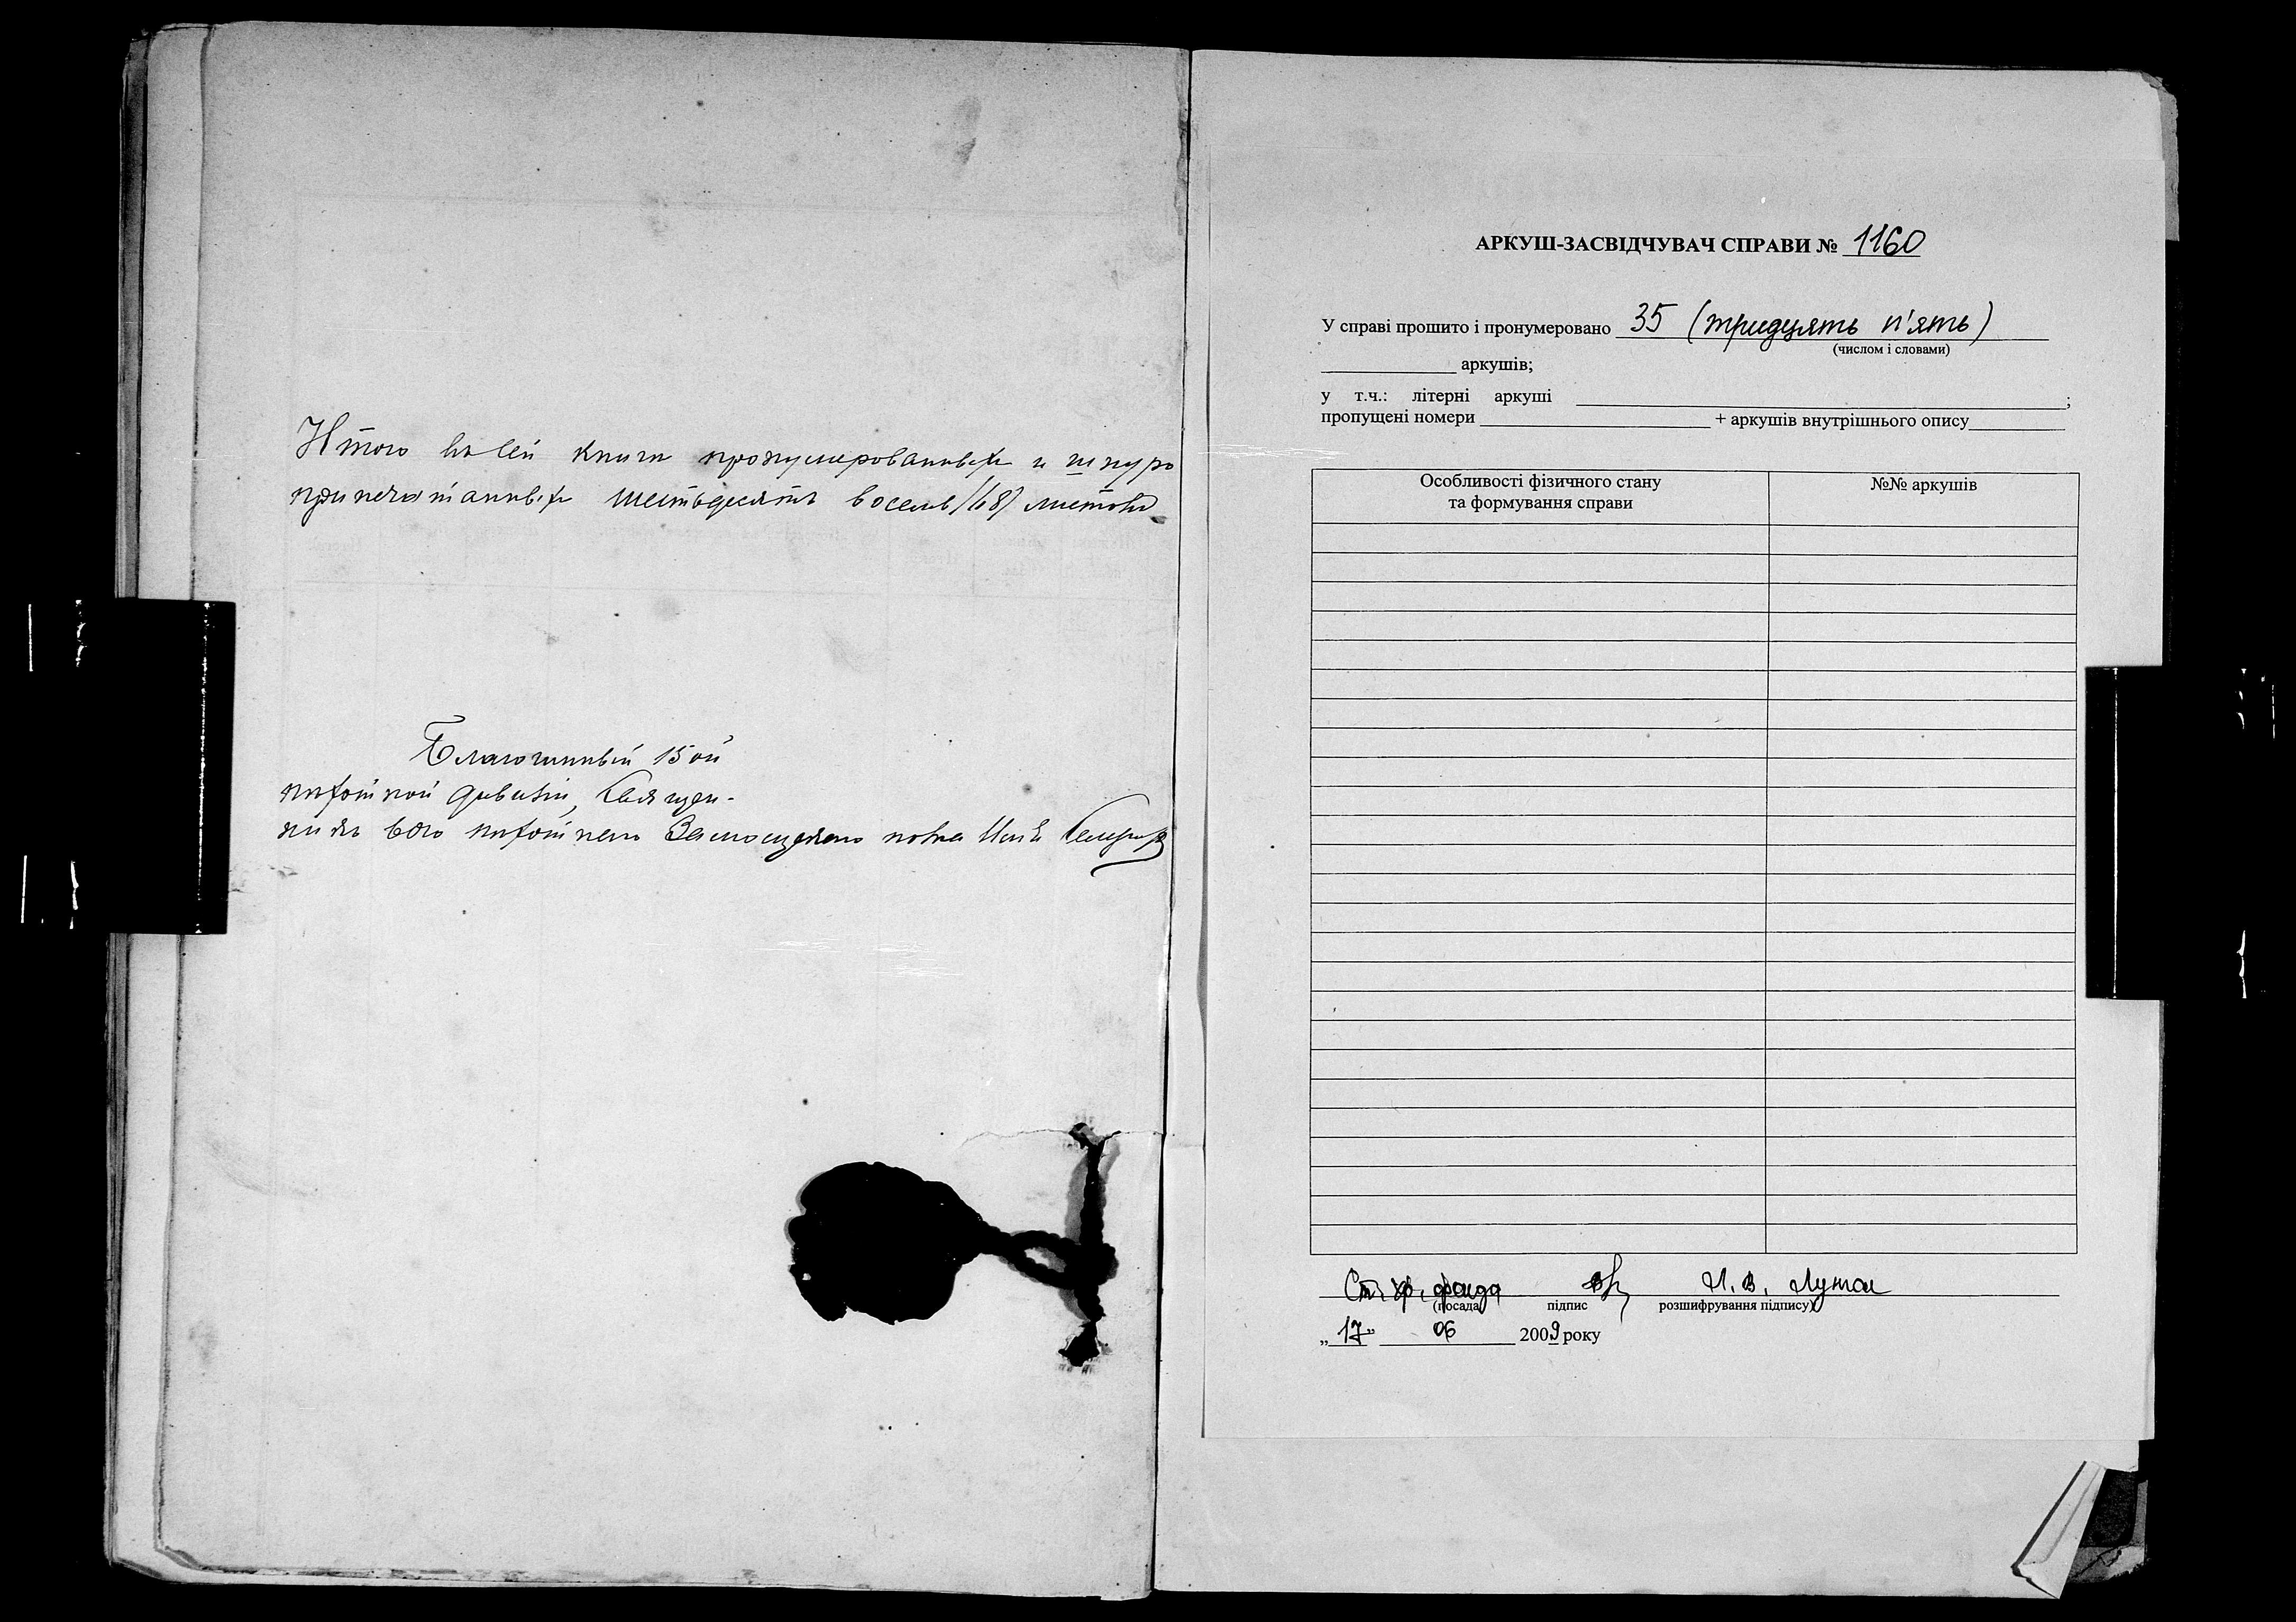 Итого въ сей книги пронумерованныхъ и шнуро
припечатанныхъ шестьдесятъ восемь /68/ листовъ
Благочинный 15ой
пѣхотной дивизіи, Священ-
никъ пѣхотнаго Замосцкаго полка
АРКУШ-ЗАСВІДЧУВАЧ СПРАВИ № 1160
У справі прошито і пронумеровано 35 (тридцять п'ять)
(числом і словами)
аркушів;
у т.ч.: літерні аркуші ;
пропущені номери + аркушів внутрішнього опису
Особливості фізичного стану №№ аркушів
та формування справи
Ст. хр. фонда И. В.
(посада) підпис розшифрування підпису)
„17” 06 2009 року